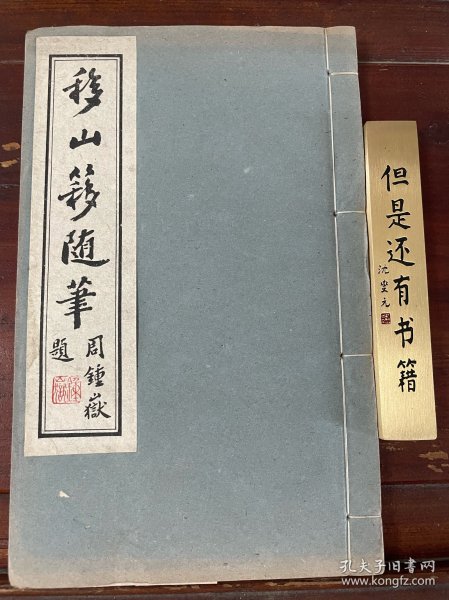 移山簃随筆
周鍾嶽
題
但是还有书籍
沈燮元
孔夫子旧书网
www.kongfz.com